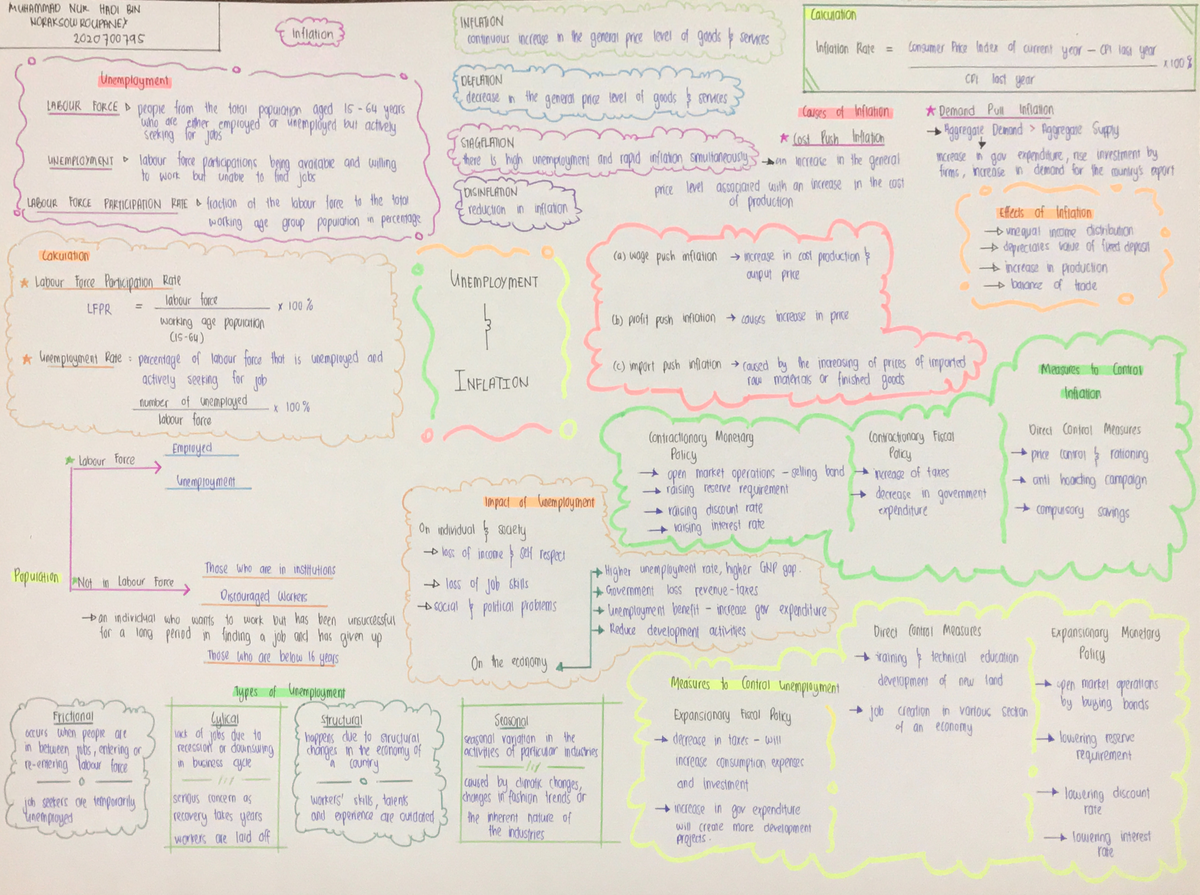 MUHAMMAD NUR HADI BIN
NORAKSOWROUPANEY
2020700795
Inflation
INFLATION
continuous increase in the general price level of goods & services
DEFLATION
decrease in the general price level of goods & services
STAGFLATION
there is high unemployment and rapid inflation simultaneously
DISINFLATION
reduction in inflation
Calculation
Inflation Rate = Consumer Price Index of current year - CPI last year x 100%
CPI last year
Unemployment
LABOUR FORCE ▷ people from the total population aged 15-64 years
who are either employed or unemployed but actively
seeking for jobs
UNEMPLOYMENT ▷ labour force participations being available and willing
to work but unable to find jobs
LABOUR FORCE PARTICIPATION RATE ▷ fraction of the labour force to the total
working age group population in percentage
Causes of Inflation
★ Cost Push Inflation
→ an increase in the general
price level associated with an increase in the cost
of production
★ Demand Pull Inflation
→ Aggregate Demand > Aggregate Supply
increase in gov expenditure, rise investment by
firms, increase in demand for the country's export
Effects of Inflation
→ unequal income distribution
→ depreciates value of fixed deposit
→ increase in production
→ balance of trade
Calculation
★ Labour Force Participation Rate
LFPR = labour force x 100%
working age population
(15-64)
★ Unemployment Rate : percentage of labour force that is unemployed and
actively seeking for job
number of unemployed x 100%
labour force
UNEMPLOYMENT
&
INFLATION
(a) wage push inflation → increase in cost production &
output price
(b) profit push inflation → causes increase in price
(c) import push inflation → caused by the increasing of prices of imported
raw materials or finished goods
Measures to Control
Inflation
Contractionary Monetary
Policy
→ open market operations - selling bond
→ raising reserve requirement
→ raising discount rate
→ raising interest rate
Contractionary Fiscal
Policy
→ increase of taxes
→ decrease in government
expenditure
Direct Control Measures
→ price control & rationing
→ anti hoarding campaign
→ compulsory savings
Population
★ Labour Force
Employed
Unemployment
★ Not in Labour Force
Those who are in institutions
Discouraged Workers
→ an individual who wants to work but has been unsuccessful
for a long period in finding a job and has given up
Those who are below 16 years
Impact of Unemployment
On individual & society
→ loss of income & self respect
→ loss of job skills
→ social & political problems
On the economy
→ Higher unemployment rate, higher GNP gap.
→ Government loss revenue-taxes
→ Unemployment benefit - increase gov expenditure
→ Reduce development activities
Types of Unemployment
Frictional
occurs when people are
in between jobs, entering or
re-entering labour force
job seekers are temporarily
unemployed
Cylical
lack of jobs due to
recession or downswing
in business cycle
serious concern as
recovery takes years
workers are laid off
Structural
happens due to structural
changes in the economy of
a country
workers' skills, talents
and experience are outdated
Seasonal
seasonal variation in the
activities of particular industries
caused by climatic changes,
changes in fashion trends or
the inherent nature of
the industries
Measures to Control Unemployment
Expansionary Fiscal Policy
→ decrease in taxes - will
increase consumption expenses
and investment
→ increase in gov expenditure
will create more development
projects.
Direct Control Measures
→ training & technical education
development of new land
→ job creation in various section
of an economy
Expansionary Monetary
Policy
→ open market operations
by buying bonds
→ lowering reserve
requirement
→ lowering discount
rate
→ lowering interest
rate